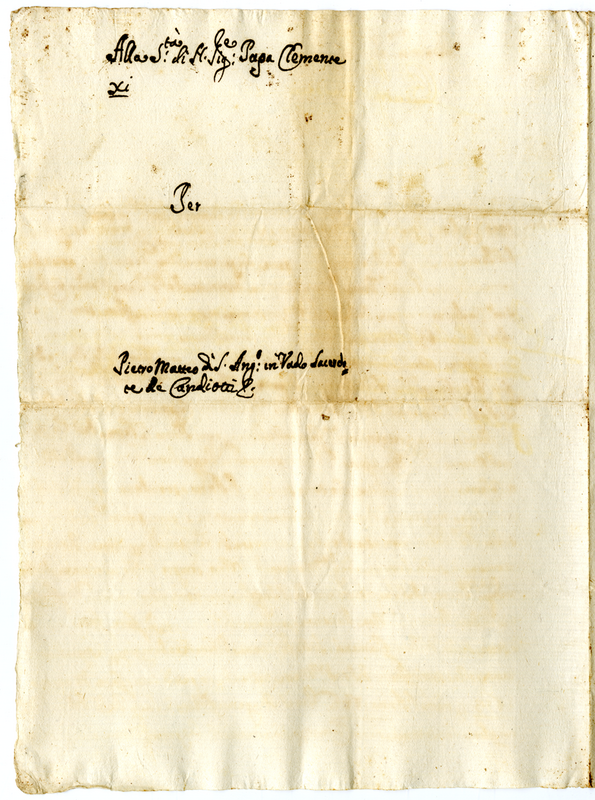 Alla S.tà di N. Sig.re Papa Clemente
xi
Per
Pietro Matteo di S. Ang.o in Vado Sacerdo=
te de Candiotti &.